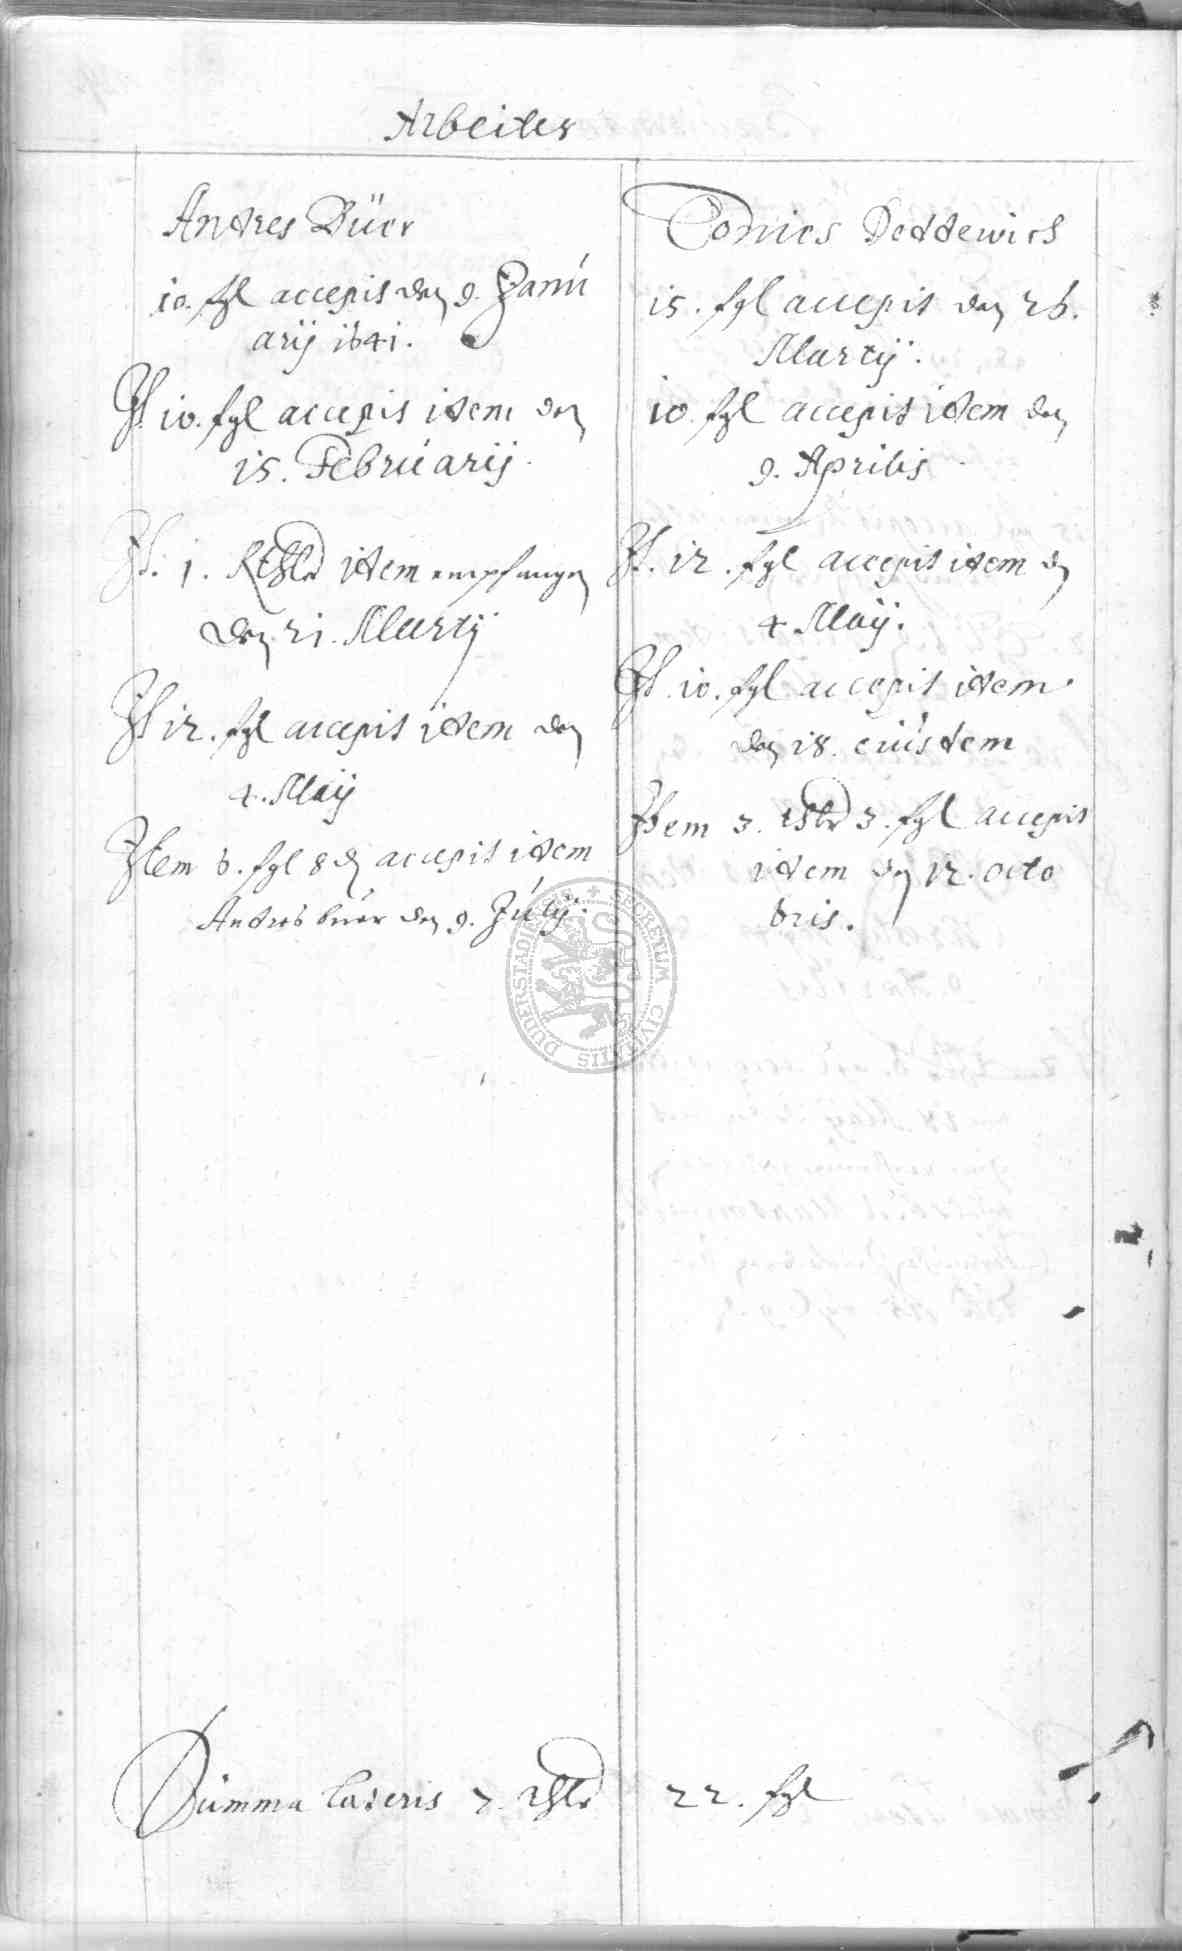 Arbeiter
Andres Büer
10. fgl accepit den 9. Janú
arij 1641.
It 10. fgl accepit idem den
15. Februarij.
It. 1. Rthlr idem empfangen
den 21. Martij
It 12. fgl accepit idem den
4. Maij
Item 6. fgl 8 ₰ accepit idem
Andres büer den 9. Julij.
Tonies Deddewich
15. fgl accepit den 26.
Martij.
10. fgl accepit idem den
9. Aprilis
It. 12. fgl accepit idem den
4. Maij.
It. 10. fgl accepit idem
den 18. eiusdem
Item 3. thlr 3. fgl accepit
idem den 12. octo
bris.
DUDERSTADIENSIS + SECRETUM CIVITATIS
Summa lateris 7. thlr 22. fgl